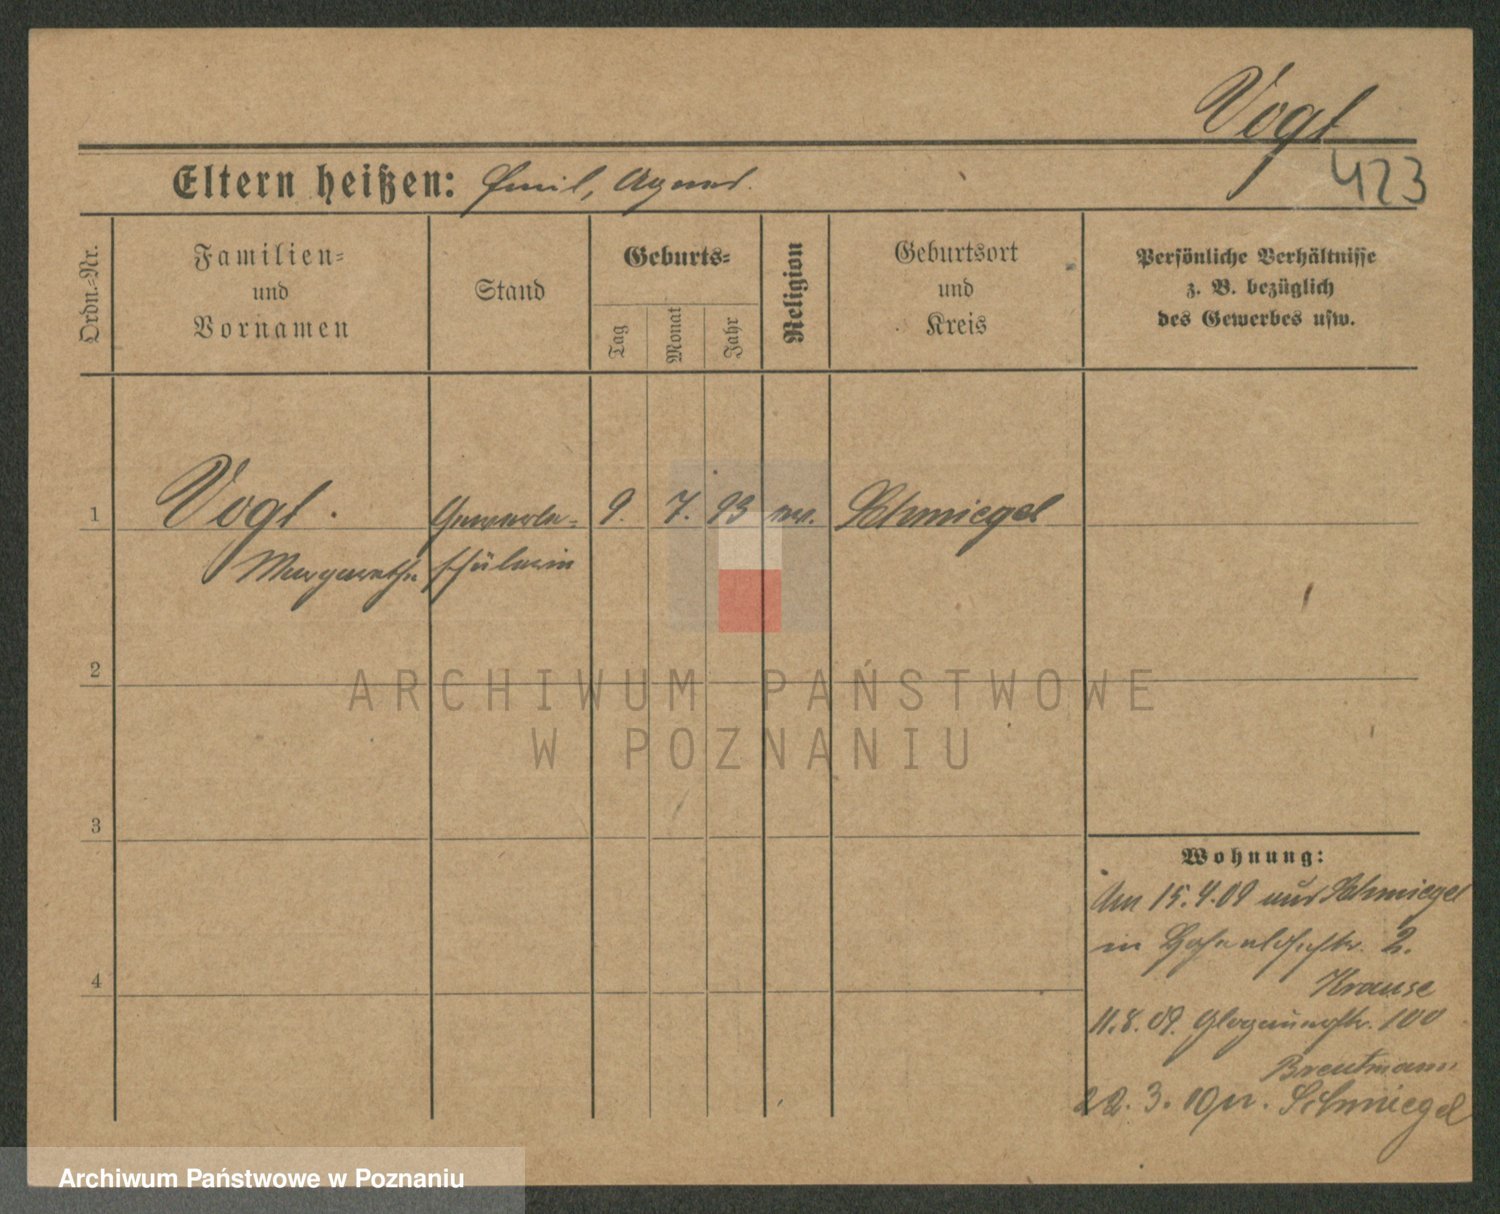 Vogt
423
Eltern heißen: Emil, Agnes.
Ordn.-Nr.
Familien-
und
Vornamen
Stand
Geburts-
Tag
Monat
Jahr
Religion
Geburtsort
und
Kreis
Persönliche Verhältnisse
z. B. bezüglich
des Gewerbes usw.
1 Vogt. Gewerbe- 9. 7. 93 ev. Schmiegel
Margarethe schülerin
2
ARCHIWUM PAŃSTWOWE
W POZNANIU
3
Wohnung:
Am 15.4.09 aus Schmiegel
in 2.
4
Krause
11.8.09. Glogauerstr. 100
Breutmann
22. 3. 10 n. Schmiegel
Archiwum Państwowe w Poznaniu